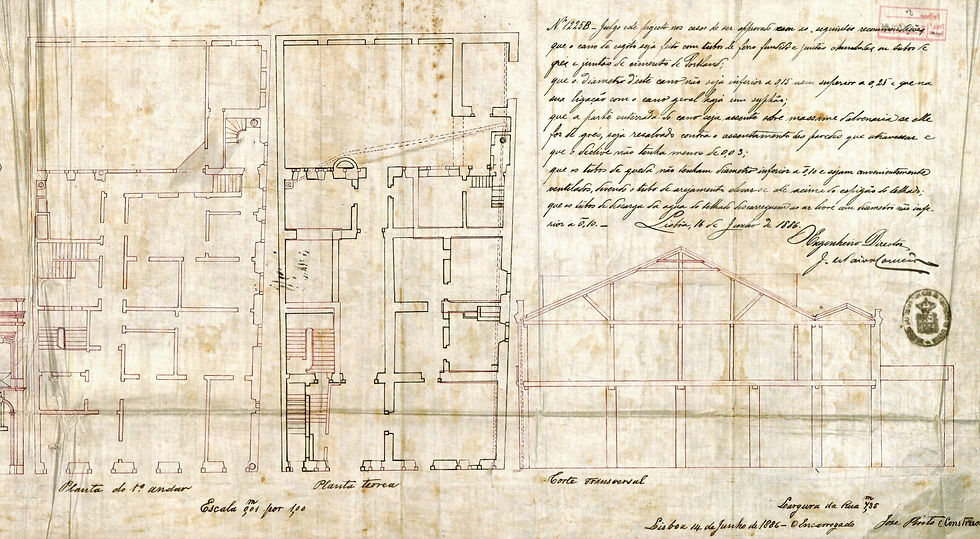 Nº 1225B - Julgo este projecto nos casos de ser approvado com as seguintes recommendações
que o cano de esgoto seja feito com tubos de ferro fundido e juntas a chumbo ou tubos de
grés e juntas de cimento de Portland;
que o diametro d'este cano não seja inferior a 0,15 nem superior a 0,25 e que na
sua ligação com o cano geral haja um syphão;
que a parte enterrada do cano seja assente sobre massame d'alvenaria se elle
for de grés, seja resalvado contra o assentamento das paredes que atravessar e
que o declive não tenha menos de 0,03;
que os tubos de queda não tenham diametro inferior a 0,10 e sejam convenientemente
ventilados, devendo o tubo de arejamento elevar-se acima do espigão do telhado;
que os tubos de descarga da agua do telhado descarreguem ao ar livre com diametro não infe-
rior a 0,10. - Lisboa, 16 de Junho de 1886.
O Engenheiro Director
Planta do 1º andar
Planta terrea
Corte transversal
Escala 0,01 por 1,00
Largura da Rua 7,35
Lisboa 14 de Junho de 1886 - O Encarregado José Constr